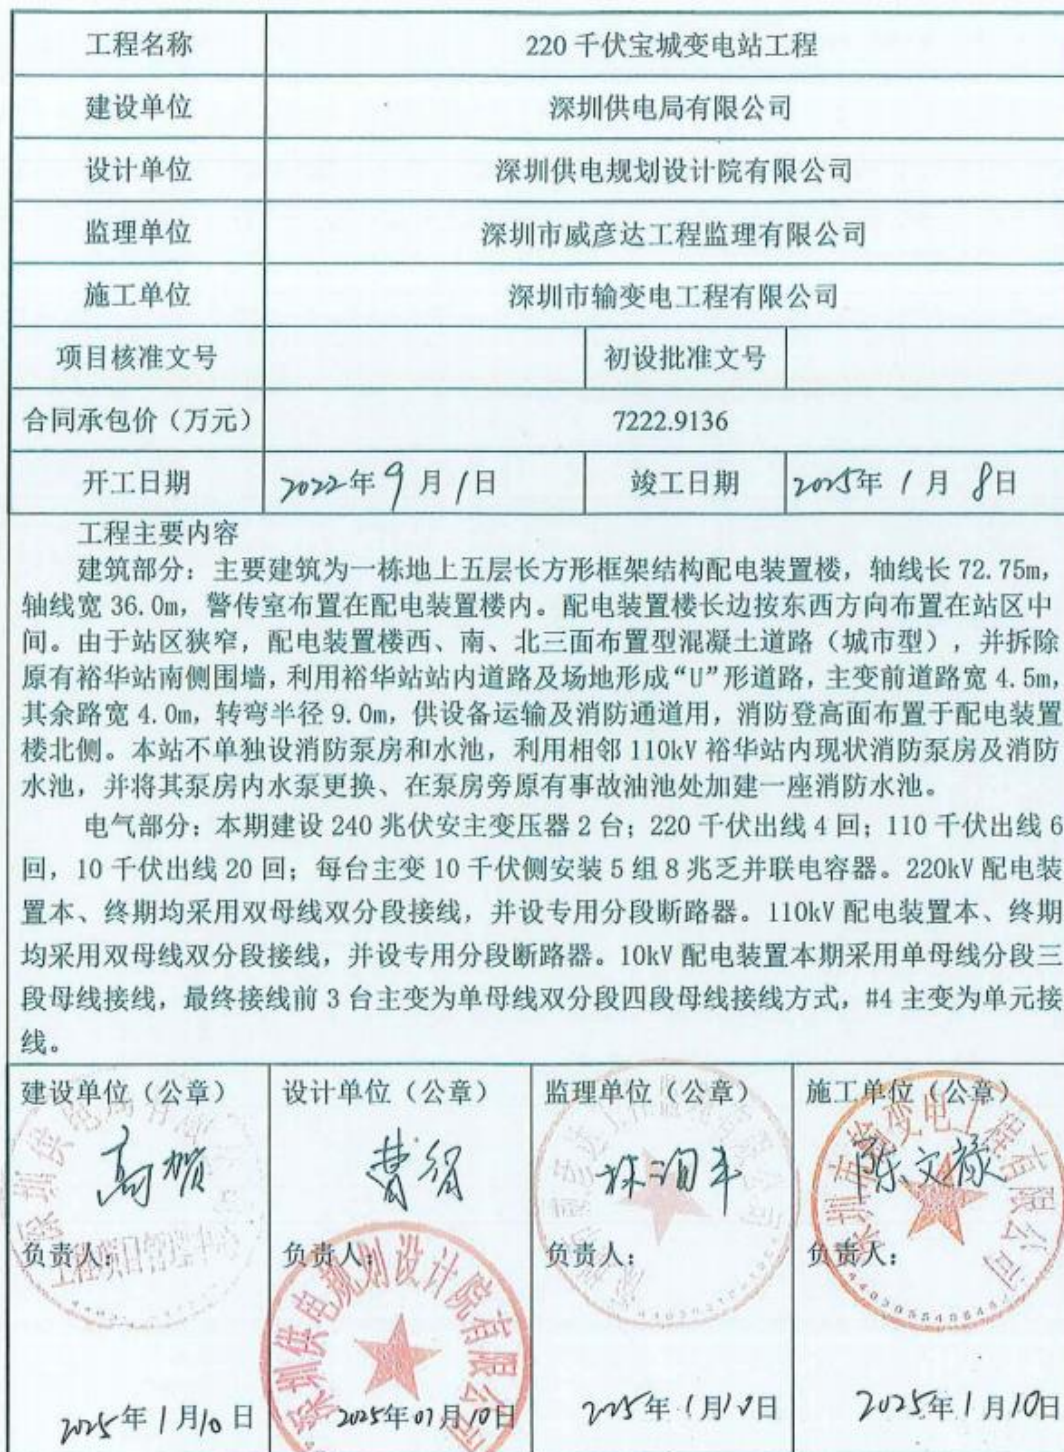 工程名称 220 千伏宝城变电站工程
建设单位 深圳供电局有限公司
设计单位 深圳供电规划设计院有限公司
监理单位 深圳市威彦达工程监理有限公司
施工单位 深圳市输变电工程有限公司
项目核准文号 初设批准文号
合同承包价（万元） 7222.9136
开工日期 2022年9月1日 竣工日期 2025年1月8日
工程主要内容
建筑部分：主要建筑为一栋地上五层长方形框架结构配电装置楼，轴线长 72.75m，
轴线宽 36.0m，警传室布置在配电装置楼内。配电装置楼长边按东西方向布置在站区中
间。由于站区狭窄，配电装置楼西、南、北三面布置型混凝土道路（城市型），并拆除
原有裕华站南侧围墙，利用裕华站站内道路及场地形成“U”形道路，主变前道路宽 4.5m，
其余路宽 4.0m，转弯半径 9.0m，供设备运输及消防通道用，消防登高面布置于配电装置
楼北侧。本站不单独设消防泵房和水池，利用相邻 110kV 裕华站内现状消防泵房及消防
水池，并将其泵房内水泵更换、在泵房旁原有事故油池处加建一座消防水池。
电气部分：本期建设 240 兆伏安主变压器 2 台；220 千伏出线 4 回；110 千伏出线 6
回，10 千伏出线 20 回；每台主变 10 千伏侧安装 5 组 8 兆乏并联电容器。220kV 配电装
置本、终期均采用双母线双分段接线，并设专用分段断路器。110kV 配电装置本、终期
均采用双母线双分段接线，并设专用分段断路器。10kV 配电装置本期采用单母线分段三
段母线接线，最终接线前 3 台主变为单母线双分段四段母线接线方式，#4 主变为单元接
线。
建设单位（公章） 设计单位（公章） 监理单位（公章） 施工单位（公章）
陈文禄
负责人： 负责人： 负责人： 负责人：
工程项目管理中心
深圳供电规划设计院有限公司
深圳市输变电工程有限公司
2025年1月10日 2025年01月10日 2025年1月10日 2025年1月10日